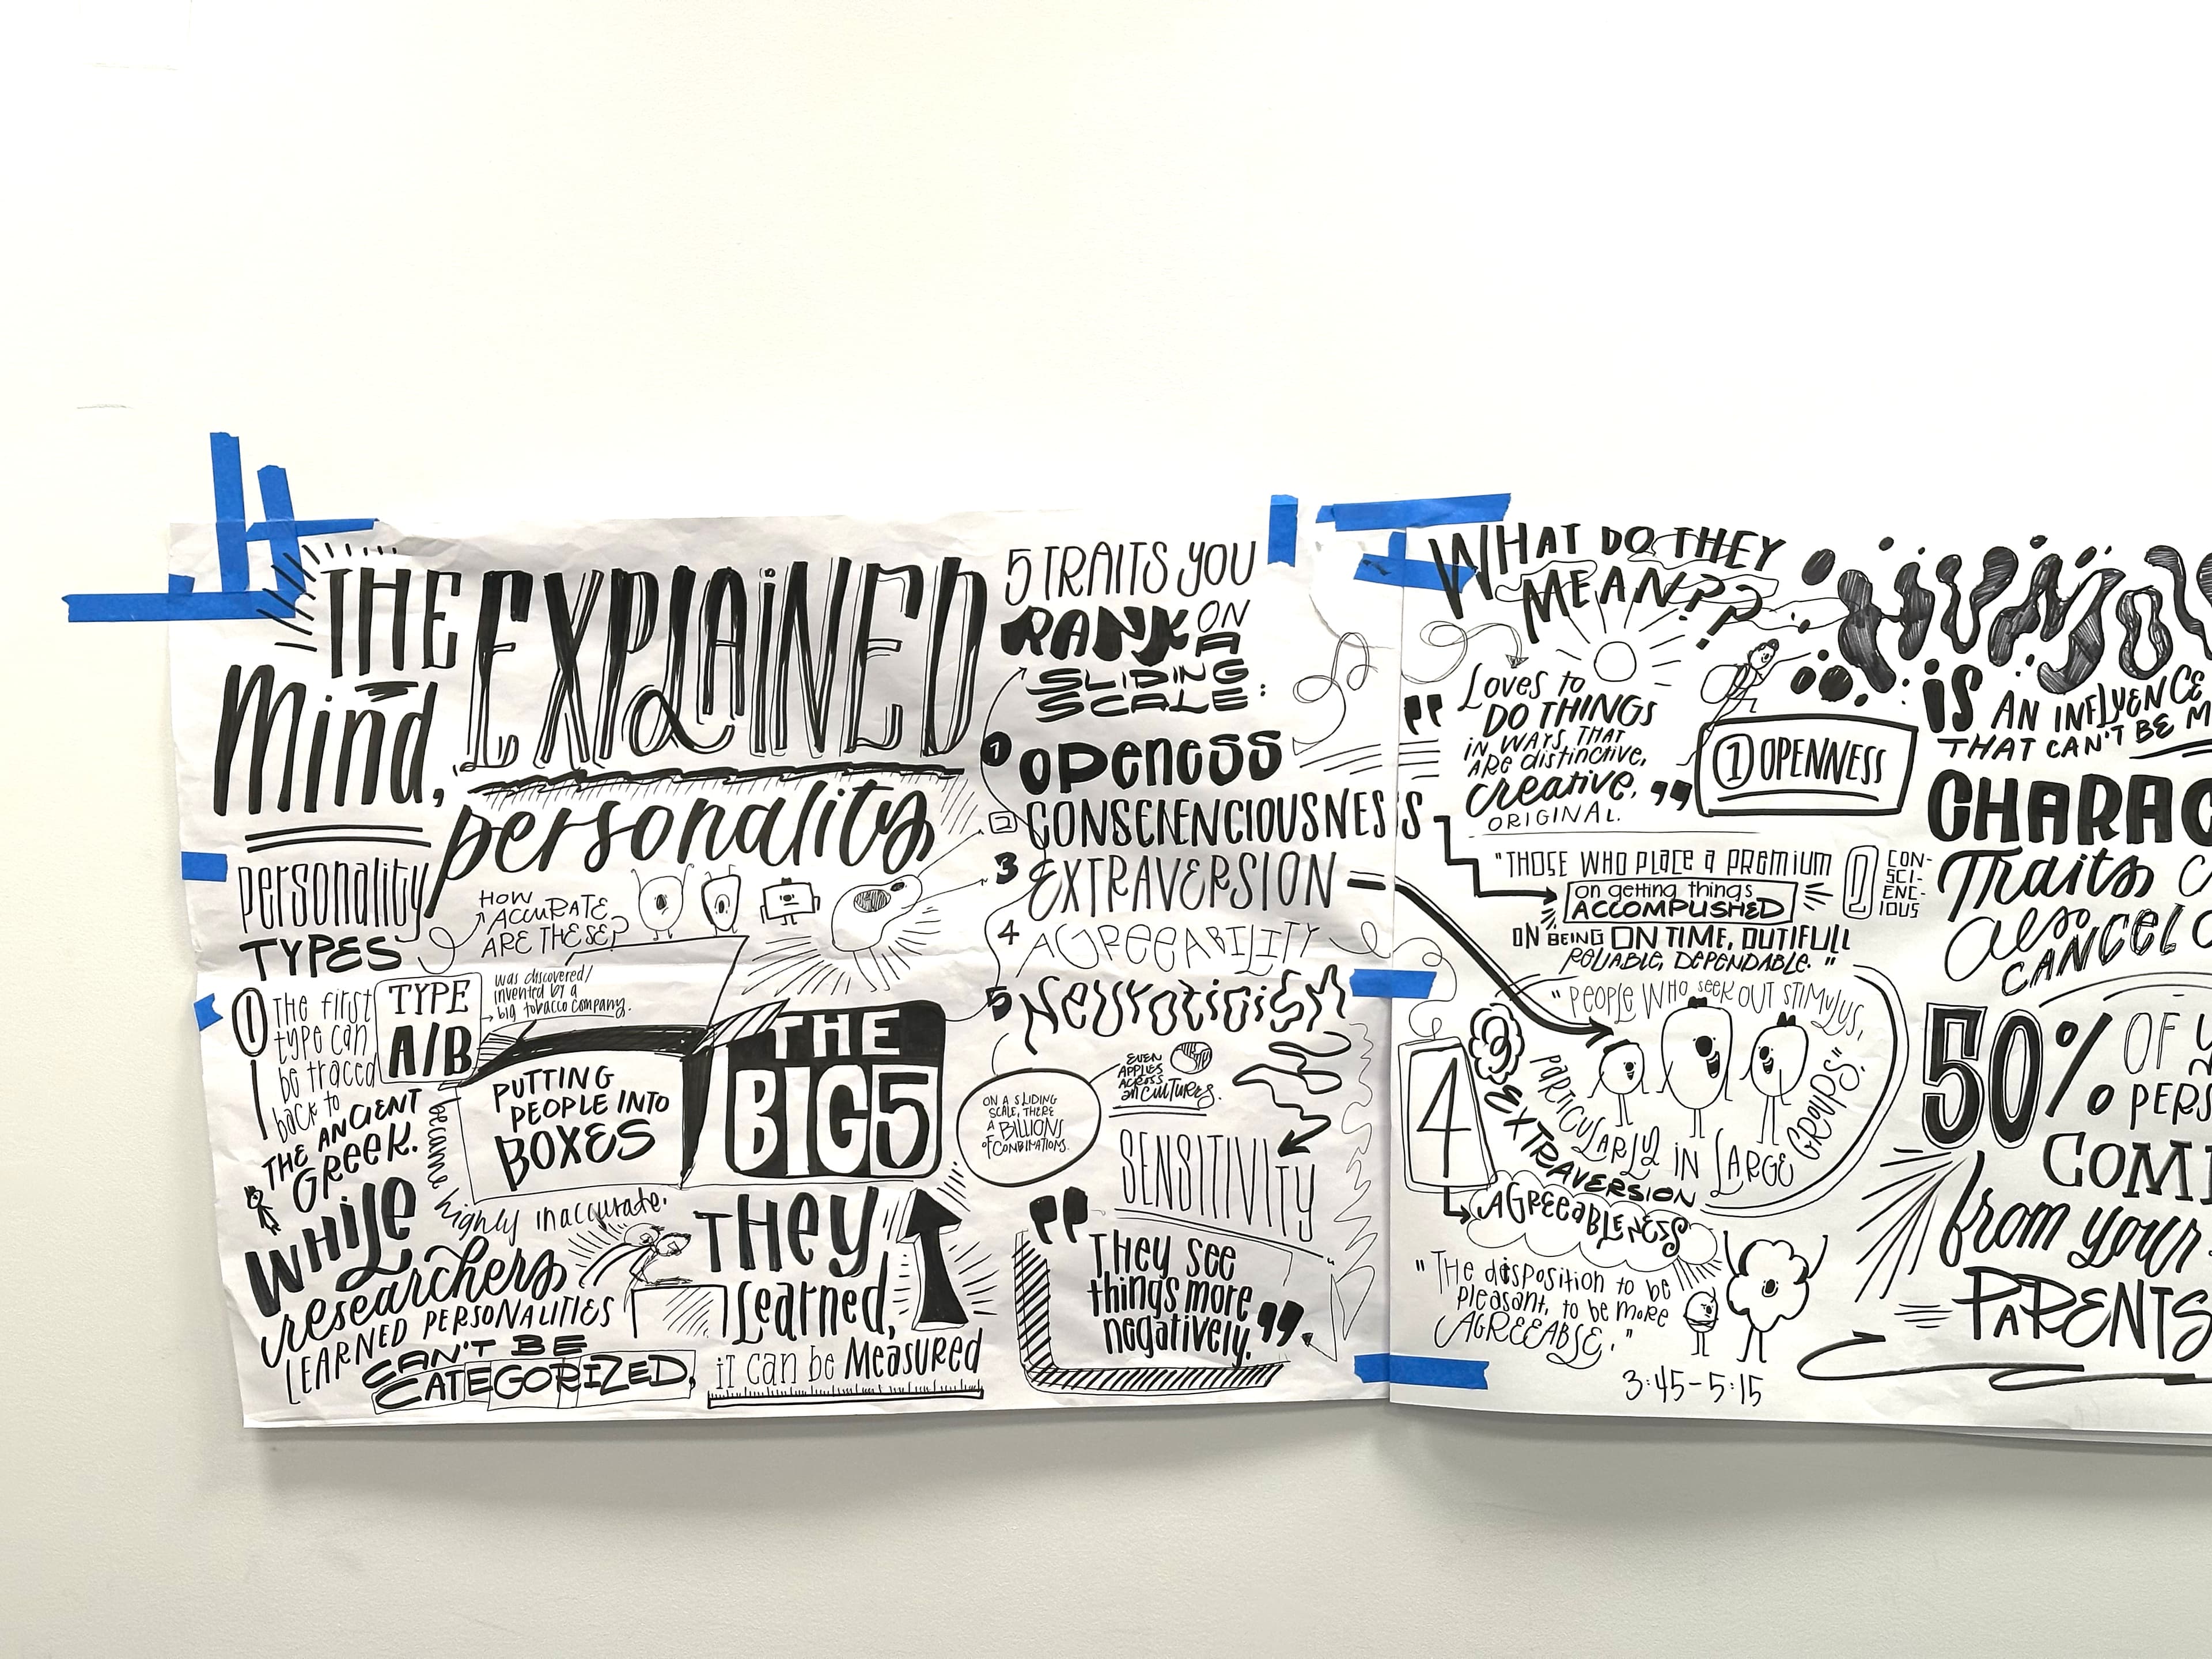 THE
Mind,
EXPLAINED
personality
personality
TYPES
HOW
ACCURATE
ARE THESE?
1 THE first
type can
be traced
back to
THE ANCIENT
GREEK.
TYPE
A/B
was discovered/
invented by a
big tobacco company.
became highly inaccurate.
PUTTING
PEOPLE INTO
BOXES
WHILE
researchers
LEARNED PERSONALITIES
CAN'T BE
CATEGORIZED,
THE
BIG5
THEY
learned,
iT can be Measured
5 TRAITS YOU
RANK ON
A
SLIDING
SCALE:
1 OPENESS
2 CONSCIENENCIOUSNESS
3 EXTRAVERSION
4 AGREEABILITY
5 Neuroticism
ON A SLIDING
SCALE, THERE
A BILLIONS
OF COMBINATIONS.
EVEN
APPLIES
ACROSS
CULTURES.
SENSITIVITY
"THEY see
things more
negatively."
WHAT DO THEY
MEAN??
"Loves to
DO THINGS
iN WAYS THAT
ARE distinctive,
creative,
ORIGINAL."
1 OPENNESS
"THOSE WHO PLACE A PREMIUM
on getting things
ACCOMPLISHED
ON BEING ON TIME, DUTIFULL
RELIABLE, DEPENDABLE."
CON-
SCI-
ENC-
IOUS
"PEOPLE WHO seek OUT STIMULUS,
PARTICULARLY IN LARGE GROUPS."
EXTRAVERSION
4
AGREEABLENESS
"THE disposition to be
pleasant, to be more
AGREEABLE."
3:45-5:15
iS AN INFLUENCE
THAT CAN'T BE M
CHARAC
Traits C
also
CANCEL O
50% OF Y
PERS
COM
from your
PARENTS